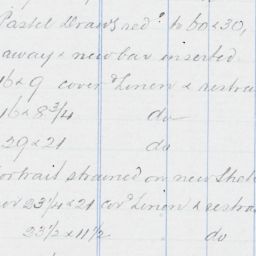 Pastel Draw'g red.d to 60 x 30,
away & new bar inserted
16 x 9 cover'd Linen & restra
16 x 8 3/4 do
29 x 21 do
ortrait strained on new Stret
cov 23 1/4 x 21 cov'd Linen & restra
23 1/2 x 11 1/2 do